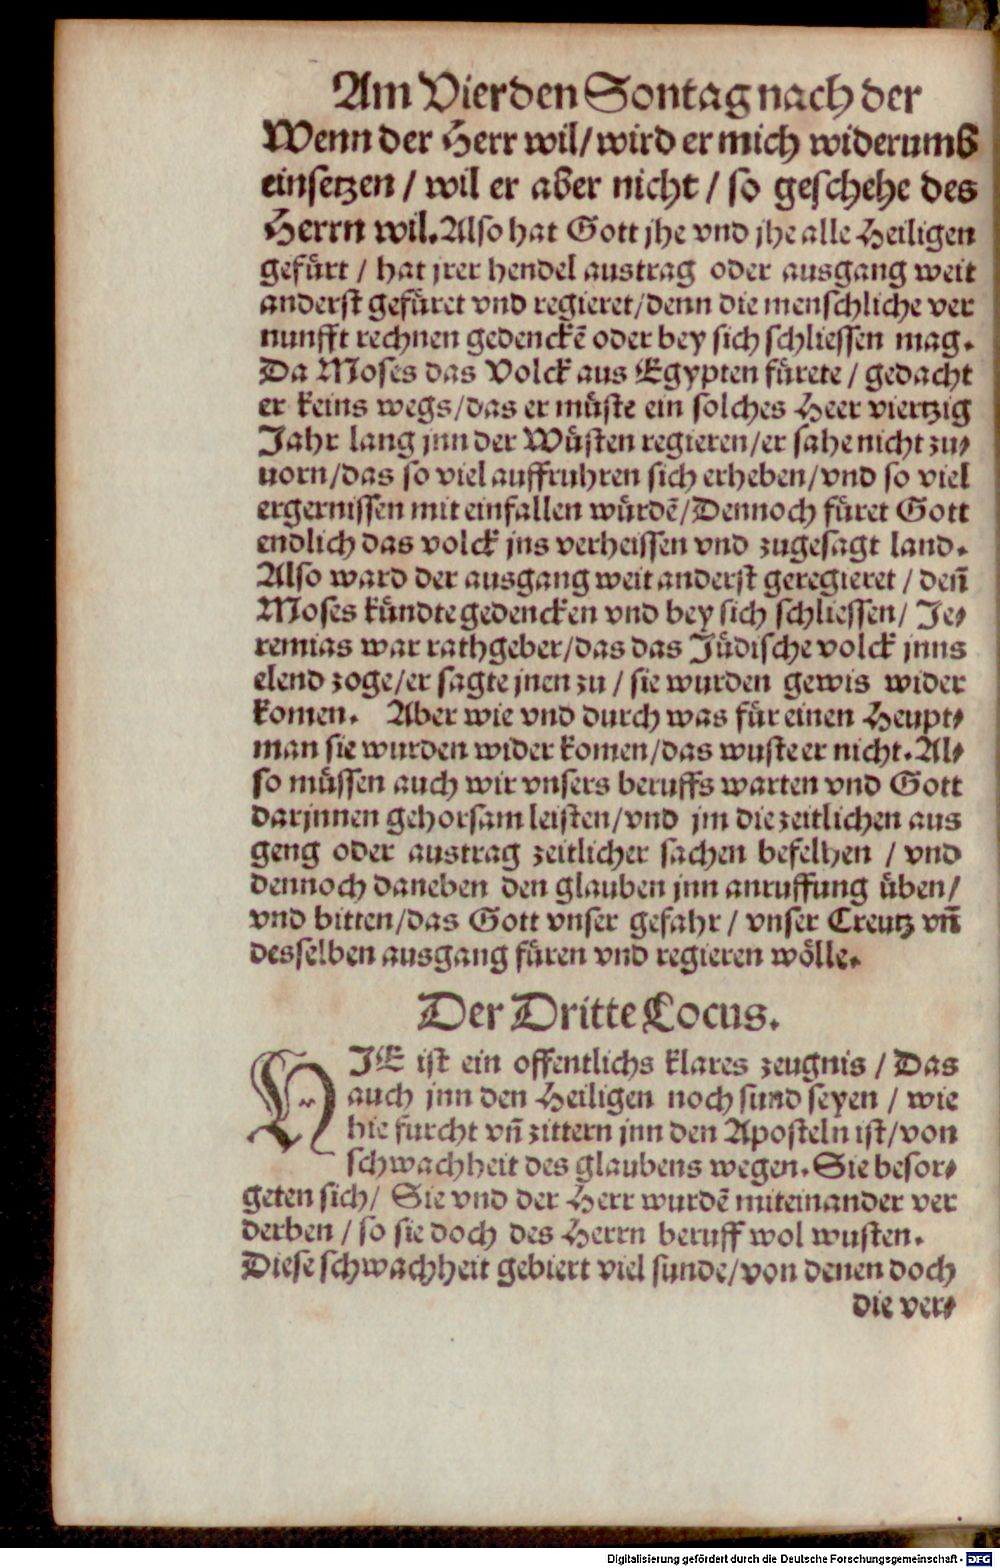 Am Vierden Sontag nach der
Wenn der Herr wil/ wird er mich widerumb
einsetzen / wil er aber nicht / so geschehe des
Herrn wil. Also hat Gott jhe vnd jhe alle Heiligen
gefürt / hat jrer hendel austrag oder ausgang weit
anderst gefüret vnd regieret/denn die menschliche ver
nunfft rechnen gedenckẽ oder bey sich schliessen mag.
Da Moses das Volck aus Egypten fürete / gedacht
er keins wegs/das er müste ein solches Heer viertzig
Jahr lang jnn der Wüsten regieren/er sahe nicht zu⸗
uorn/das so viel auffruhren sich erheben/vnd so viel
ergernissen mit einfallen würdẽ/Dennoch füret Gott
endlich das volck jns verheissen vnd zugesagt land.
Also ward der ausgang weit anderst geregieret / deñ
Moses kündte gedencken vnd bey sich schliessen/ Je⸗
remias war rathgeber/das das Jüdische volck jnns
elend zoge/er sagte jnen zu / sie wurden gewis wider
komen. Aber wie vnd durch was für einen Heupt⸗
man sie wurden wider komen/das wuste er nicht. Al⸗
so müssen auch wir vnsers beruffs warten vnd Gott
darjnnen gehorsam leisten/vnd jm die zeitlichen aus
geng oder austrag zeitlicher sachen befelhen / vnd
dennoch daneben den glauben jnn anruffung üben/
vnd bitten/das Gott vnser gefahr / vnser Creutz vñ
desselben ausgang füren vnd regieren wölle.
Der Dritte Locus.
HJE ist ein offentlichs klares zeugnis / Das
auch jnn den Heiligen noch sund seyen / wie
hie furcht vñ zittern jnn den Aposteln ist/von
schwachheit des glaubens wegen. Sie besor⸗
geten sich/ Sie vnd der Herr wurdẽ miteinander ver
derben / so sie doch des Herrn beruff wol wusten.
Diese schwachheit gebiert viel sunde/von denen doch
die ver⸗
Digitalisierung gefördert durch die Deutsche Forschungsgemeinschaft - DFG